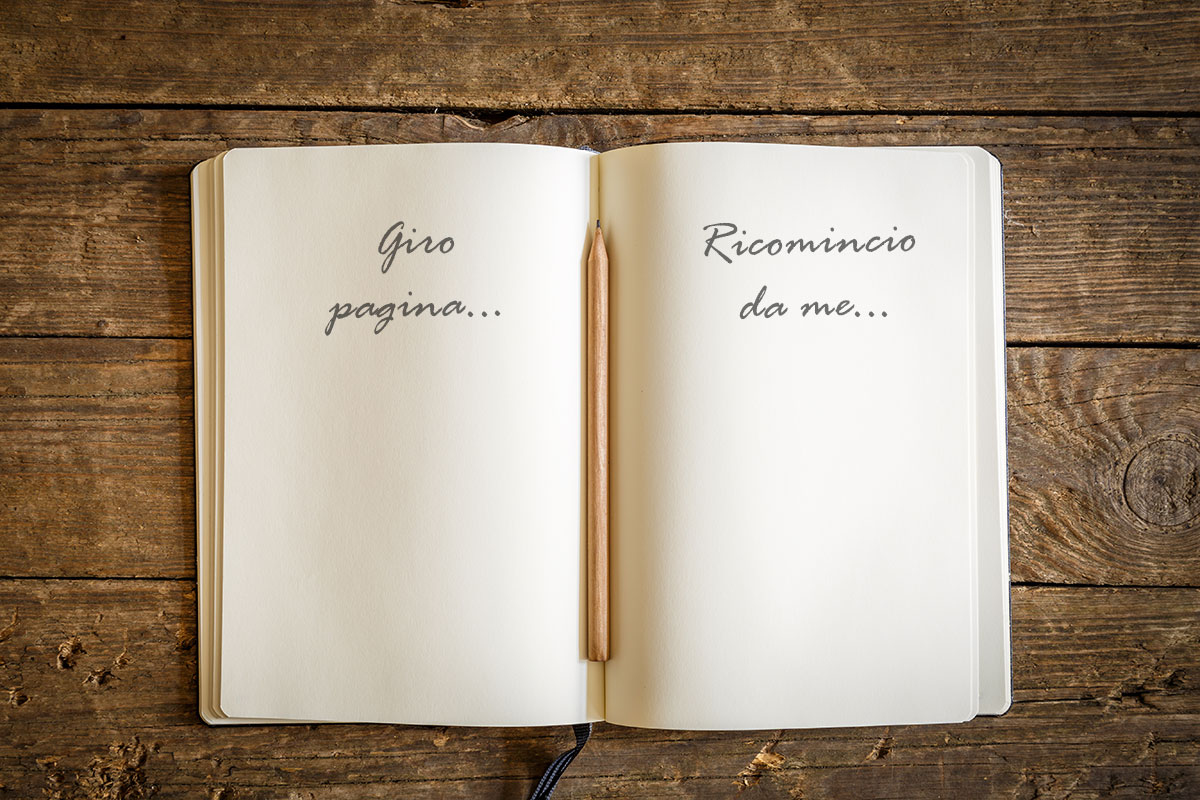 Giro
pagina...
Ricomincio
da me...